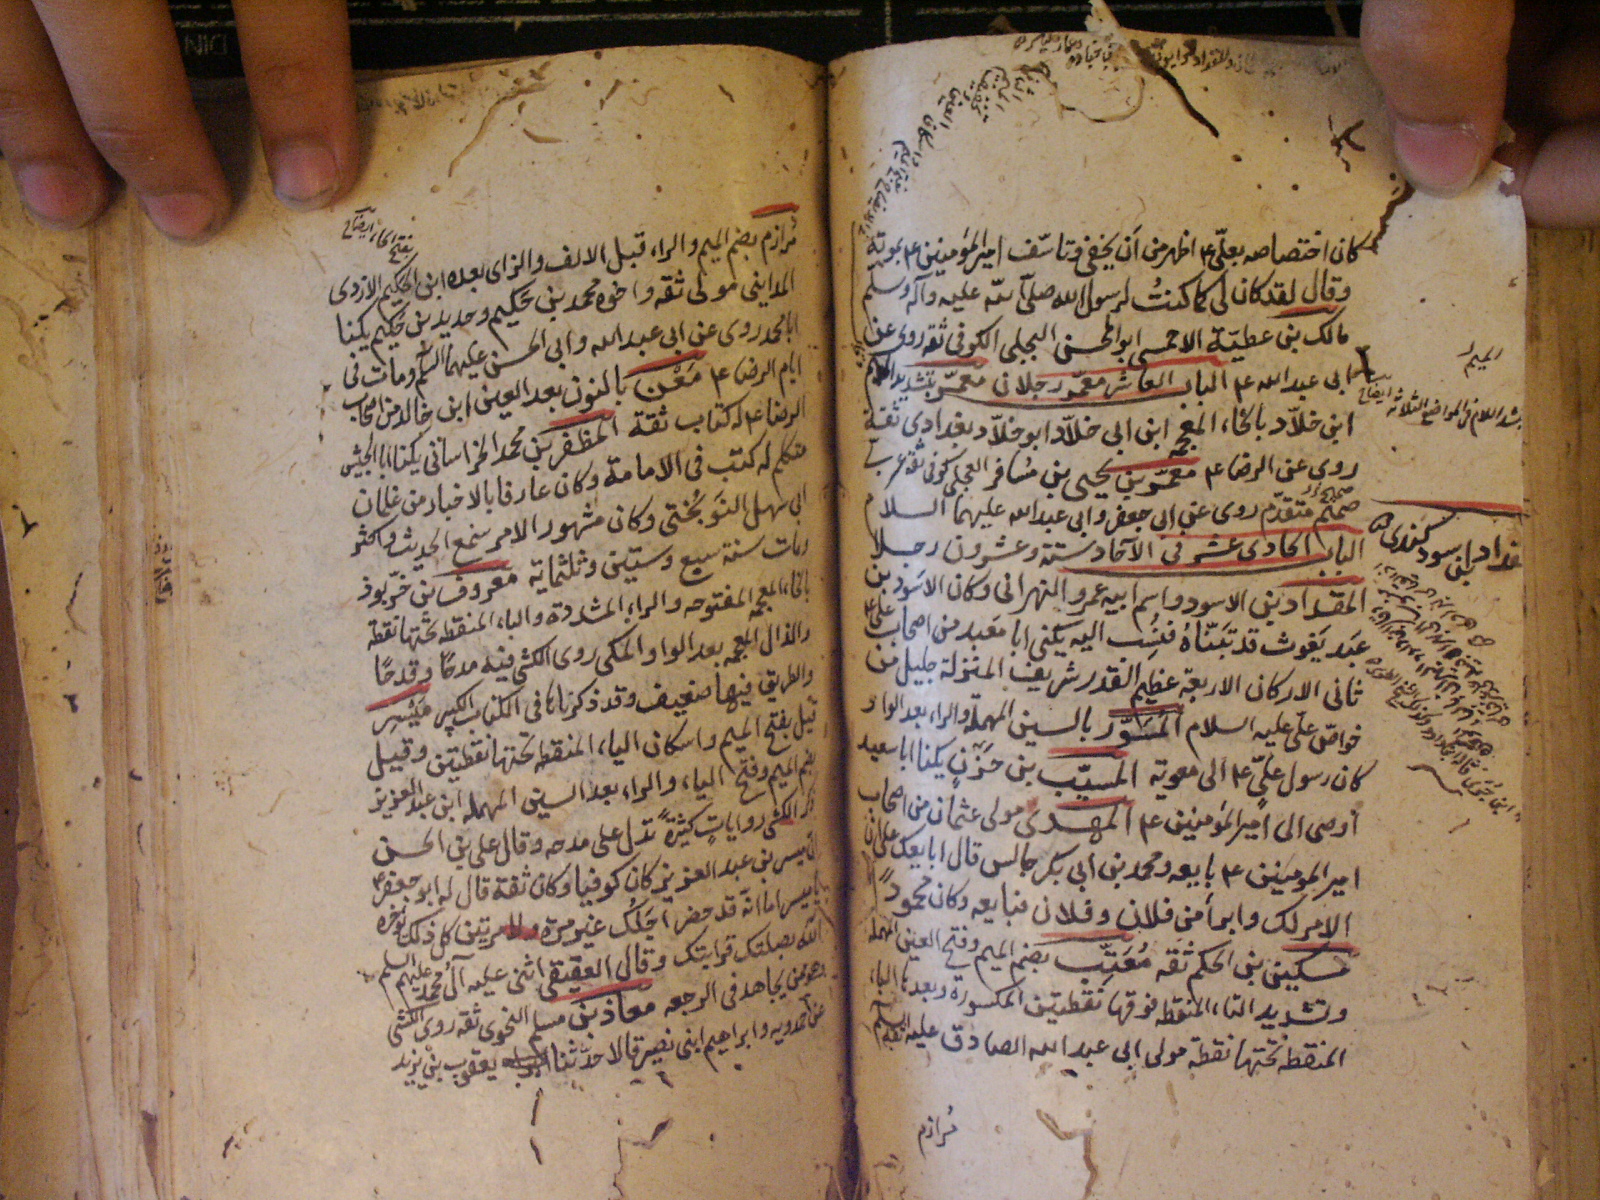 كان اختصاصه بعلي ع اظهر من أن يخفى وتأسّف امير المؤمنين ع بموته
وقال لقد كان لي كما كنتُ لرسول الله صلى الله عليه وآله وسلم
مالك بن عطيّة الاحمسي ابو الحسن البجلي الكوفي ثقة روى عن
ابي عبد الله ع الباب العاشر معمّر رجلان معمّر بتشديد الميم
ابن خلاّد بالخاء المعجمه ابن ابي خلاّد ابو خلاّد بغدادى ثقة
روى عن الرضا ع معمّر بن يحيى بن مسافر العجلي كوفي ثقة عربي
صميم متقدّم روى عن ابي جعفر وابي عبد الله عليهما السلام
الباب الحادى عشر في الآحاد ستة وعشرون رجلا
المقداد بن الاسود واسم ابيه عمرو البهراني وكان الاسود بن
عبد يَغوث قد تبنّاهُ فنُسِب اليه يكنى ابا معبد من اصحاب على ع
ثانى الاركان الاربعة عظيم القدر شريف المنزلة جليل من
خواصّ علي عليه السلام المسوّر بالسين المهملة والراء بعد الواو
كان رسول عليّ ع الى معوية المسيّب بن حَزَن يكنا ابا سعيد
أوصى الى امير المؤمنين ع المهدى مولى عثمان من اصحاب
امير المومنين ع بايعه ومحمد بن ابي بكر جالس قال ابايعك على ان
الامر لك وابرأ من فلان وفلان فبايعه وكان محمودًا
مسكين بن الحكم ثقه مُعَتِّب بضم الميم وفتح العين المهملة
وتشديد التاء المنقطه فوقها نقطتين المكسورة وبعدها الباء
المنقطه تحتها نقطة مولى ابي عبد الله الصادق عليه السلم ثقة
مُرازم
الميم
بشد اللام في المواضع الثلاثة ايضاح
مقداد بن اسود كندى
مُرازم بضم الميم والراء قبل الالف والزاى بعده ابن الحكيم الازدى
بفتح الحاء ايضاح
المدايني مولى ثقه واخوه محمد بن حكيم وحديد بن حكيم يكنا
ابا محمد روى عن ابي عبد الله وابي الحسن عليهما السلم ومات في
ايام الرضا ع مَعْن بالنون بعد العين ابن خالد من اصحاب
الرضا ع له كتاب ثقة المظفر بن محمد الخراساني يكنا ابا الجيش
متكلم له كتب في الامامة وكان عارفا بالاخبار من غلمان
ابي سهل النوبختي وكان مشهور الامر سمع الحديث واكثر
ومات سنة سبع وستين وثلثمائه معروف بن خرّبوذ
بالخاء المعجمه المفتوحه والراء المشددة والباء المنقطه تحتها نقطة
والذال المعجمه بعد الواو المكى روى الكشى فيه مدحًا وقدحًا
والطريق فيهما ضعيف وقد ذكرناها في الكتاب الكبير مُيَسِّر
قيل بفتح الميم واسكان الياء المنقطه تحتها نقطتين وقيل
بضم الميم وفتح الياء والراء بعد السين المهمله ابن عبد العزيز
ذكر الكشى روايات كثيرةً تدل على مدحه وقال على بن الحسن
ان ميسر بن عبد العزيز كان كوفيا وكان ثقة قال له ابو جعفر ع
يا ميسر اما انّه قد حضر اجَلُك غير مرة ولا مرتين كل ذلك يؤخره
الله بصلتك قرابتك وقال العقيقى اثنى عليه آل محمد عليهم السلم
وهو ممن يجاهد في الرجعه معاذ بن مسلم النحوى ثقه روى الكشى
عن حمدويه وابراهيم ابنى نصير قالا حدثنا يعقوب بن يزيد